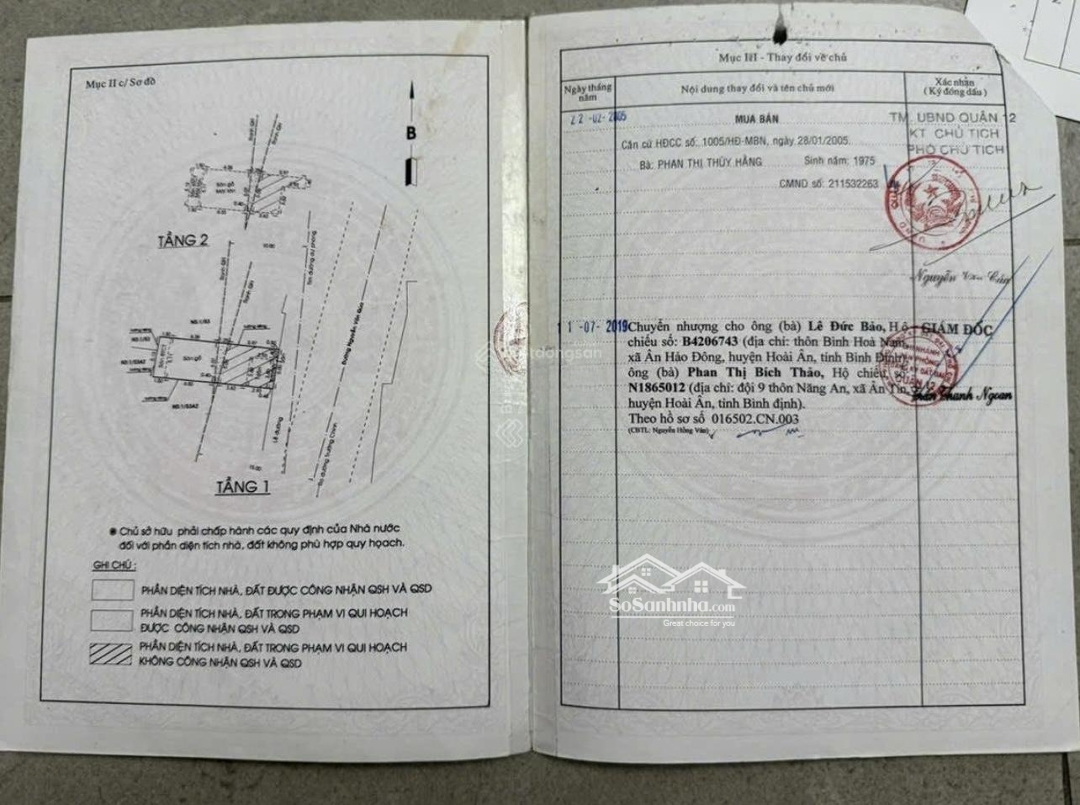 Mục II c/ Sơ đồ
B
Ranh QH
Sàn gỗ
TẦNG 2
Tim đường dự phóng
Đường Nguyễn Văn Quá
Sàn gỗ
Lề đường
Tim đường Trường Chinh
TẦNG 1
Chủ sở hữu phải chấp hành các quy định của Nhà nước
đối với phần diện tích nhà, đất không phù hợp quy hoạch.
GHI CHÚ :
PHẦN DIỆN TÍCH NHÀ, ĐẤT ĐƯỢC CÔNG NHẬN QSH VÀ QSD
PHẦN DIỆN TÍCH NHÀ, ĐẤT TRONG PHẠM VI QUI HOẠCH
ĐƯỢC CÔNG NHẬN QSH VÀ QSD
PHẦN DIỆN TÍCH NHÀ, ĐẤT TRONG PHẠM VI QUI HOẠCH
KHÔNG CÔNG NHẬN QSH VÀ QSD
Mục III - Thay đổi về chủ
Ngày tháng
năm
Nội dung thay đổi và tên chủ mới
Xác nhận
(Ký đóng dấu)
22 -02- 2005
MUA BÁN
Căn cứ HĐCC số: 1005/HĐ-MBN, ngày 28/01/2005.
Bà: PHAN THỊ THÚY HẰNG Sinh năm: 1975
CMND số: 211532263
TM. UBND QUẬN 12
KT CHỦ TỊCH
PHÓ CHỦ TỊCH
Nguyễn Văn
11 -07- 2019
Chuyển nhượng cho ông (bà) Lê Đức Bảo, Hộ
chiếu số: B4206743 (địa chỉ: thôn Bình Hoà Nam,
xã Ân Hảo Đông, huyện Hoài Ân, tỉnh Bình Định)
ông (bà) Phan Thị Bích Thảo, Hộ chiếu số:
N1865012 (địa chỉ: đội 9 thôn Năng An, xã Ân Tín,
huyện Hoài Ân, tỉnh Bình định).
Theo hồ sơ số 016502.CN.003
(CBTL: Nguyễn Hồng Vân)
GIÁM ĐỐC
QUẬN 12
Trần Thanh Ngoan
SoSanhnha.com
Great choice for you